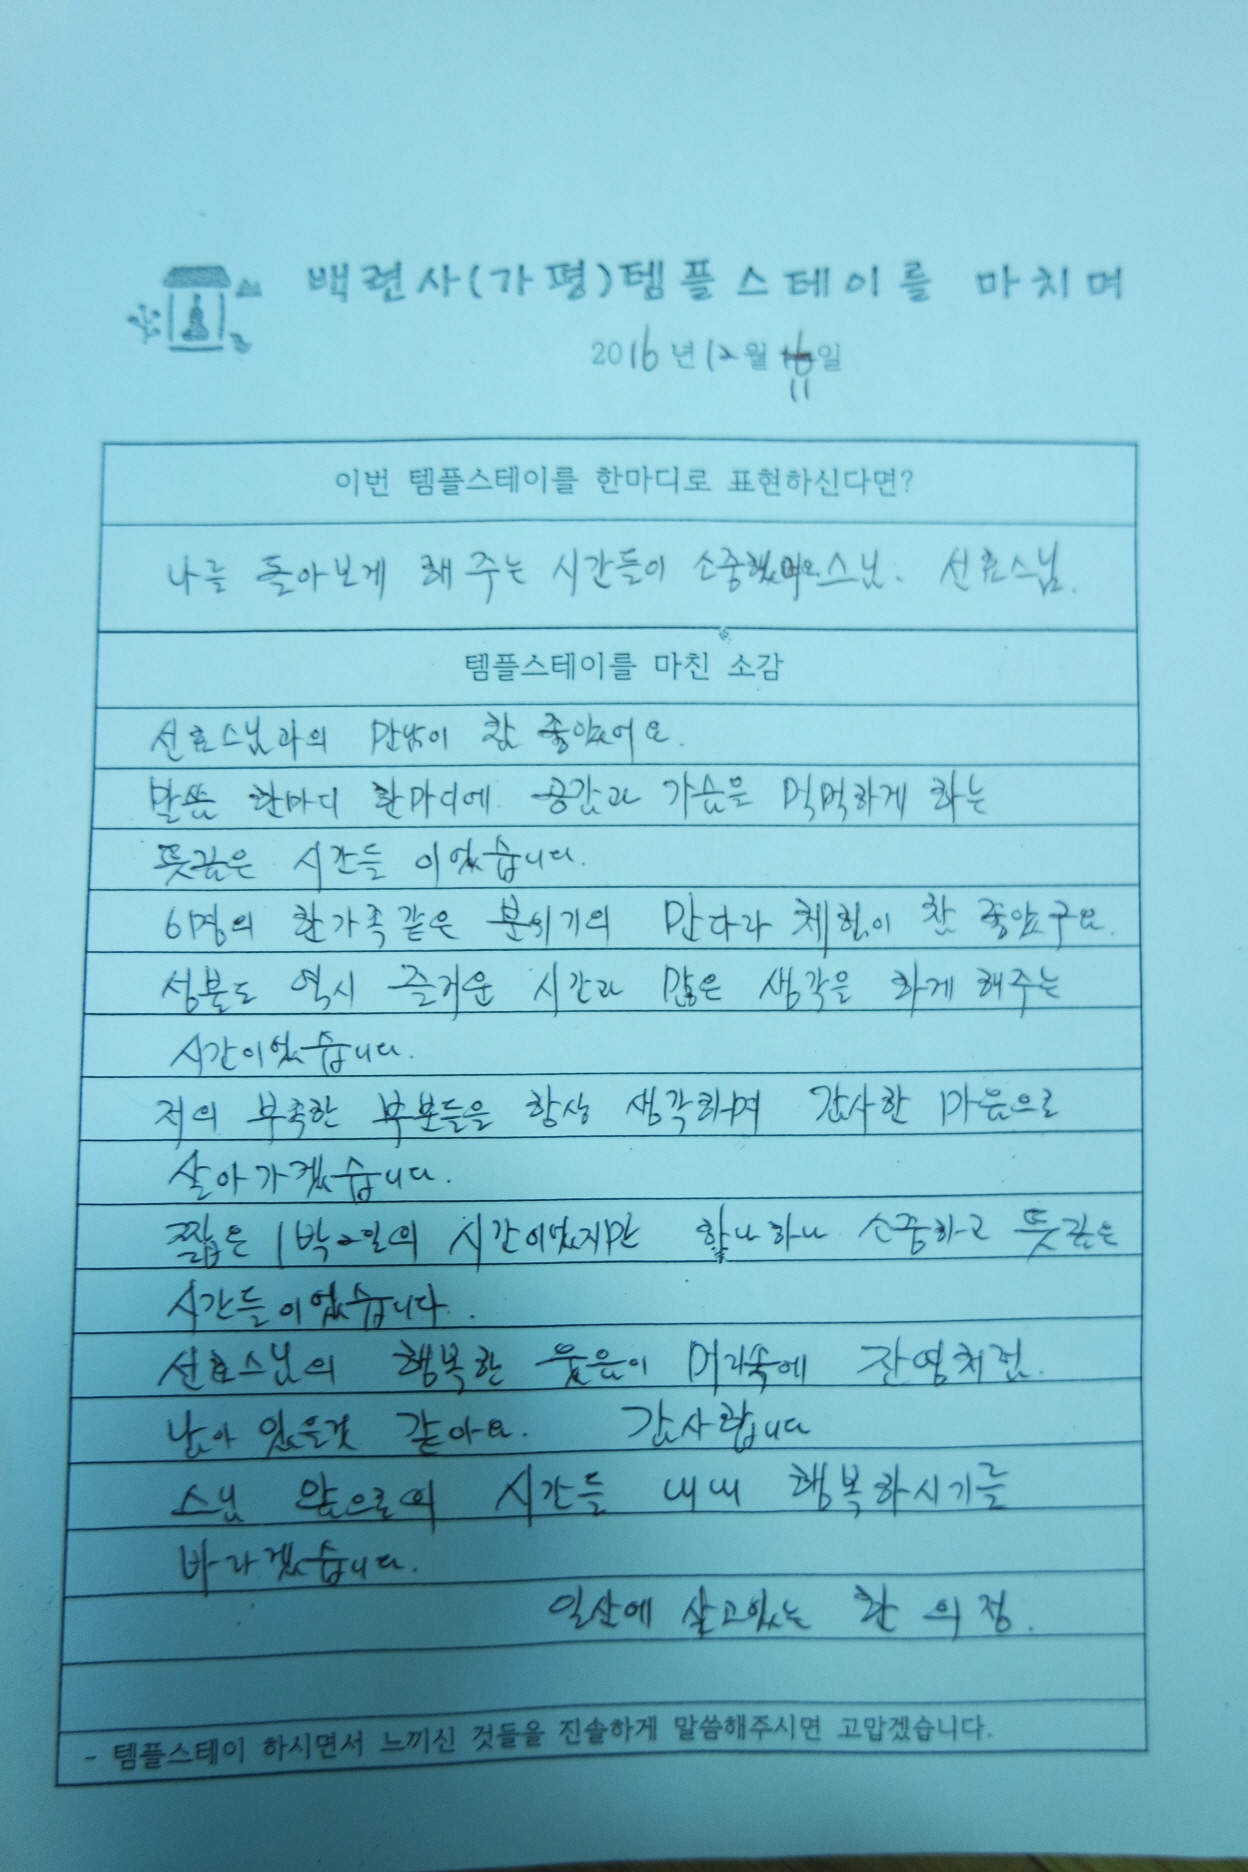 백련사(가평)템플스테이를 마치며
2016년 12월 11일
이번 템플스테이를 한마디로 표현하신다면?
나를 돌아보게 해 주는 시간들이 소중했어요 스님. 선효스님.
템플스테이를 마친 소감
선효스님과의 만남이 참 좋았어요.
말씀 한마디 한마디에 공감과 가슴을 먹먹하게 하는
뜻깊은 시간들 이었습니다.
6명의 한가족같은 분위기의 만다라 체험이 참 좋았구요.
성불도 역시 즐거운 시간과 많은 생각을 하게 해주는
시간이었습니다.
저의 부족한 부분들을 항상 생각하며 감사한 마음으로
살아가겠습니다.
짧은 1박2일의 시간이었지만 하나하나 소중하고 뜻깊은
시간들이었습니다.
선효스님의 행복한 웃음이 머리속에 잔영처럼.
남아 있을것 같아요. 감사합니다
스님 앞으로의 시간들 내내 행복하시기를
바라겠습니다.
일산에 살고있는 한 의정.
- 템플스테이 하시면서 느끼신 것들을 진솔하게 말씀해주시면 고맙겠습니다.